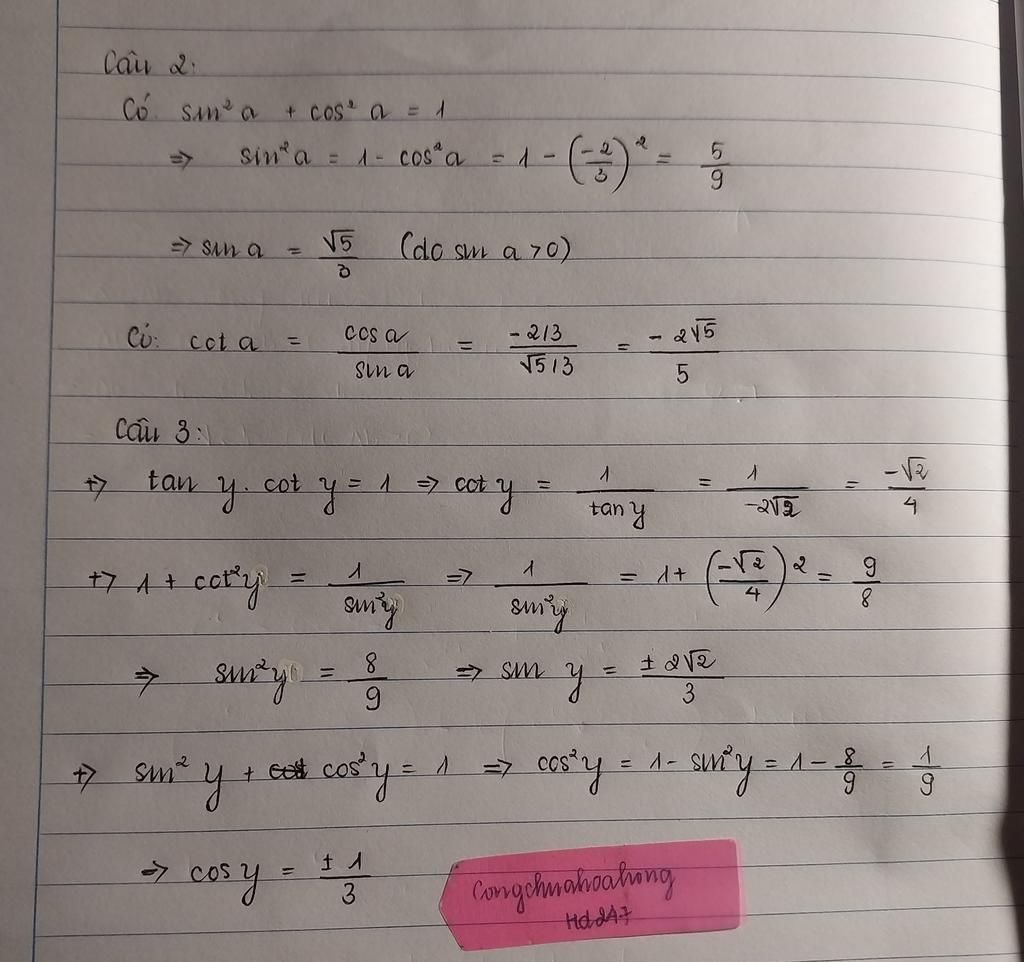 Câu 2:
Có sin² a + cos² a = 1
=> sin²a = 1 - cos²a = 1 - (-2/3)² = 5/9
=> sin a = √5/3 (do sin a > 0)
Có: cot a = cos a/sin a = -2/3/√5/3 = -2√5/5
Câu 3:
+> tan y. cot y = 1 => cot y = 1/tan y = 1/-2√2 = -√2/4
+> 1 + cot²y = 1/sin²y => 1/sin²y = 1+ (-√2/4)² = 9/8
=> sin²y = 8/9 => sin y = ±2√2/3
+> sin² y + cos²y = 1 => cos²y = 1 - sin²y = 1 - 8/9 = 1/9
=> cos y = ±1/3
Congchuahoahong
Hd247